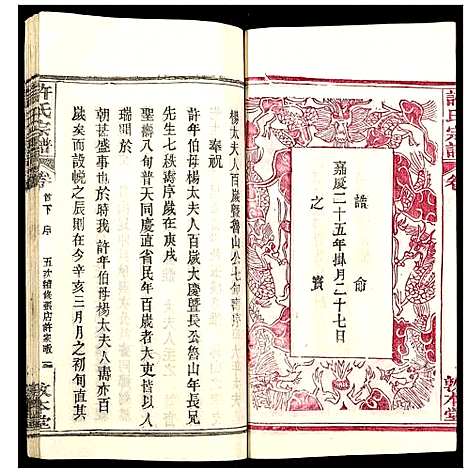 許氏宗譜
卷
敦本堂
誥命
嘉慶二十五年掛月二十七日
之寶
楊太夫人百歲暨魯山公七旬壽序
奉祝
許年伯母楊太夫人百歲大慶暨長公魯山年長兄
先生七秩壽序歲在庚戌
聖壽八旬普天同慶直省民年百歲者大吏皆以人
瑞聞於
朝甚盛事也於時我許年伯母楊太夫人壽亦百
歲矣而設帨之辰則在今辛亥三月月之初旬直其
許氏宗譜
卷
首下序
五次續修張店許家畈
敦本堂